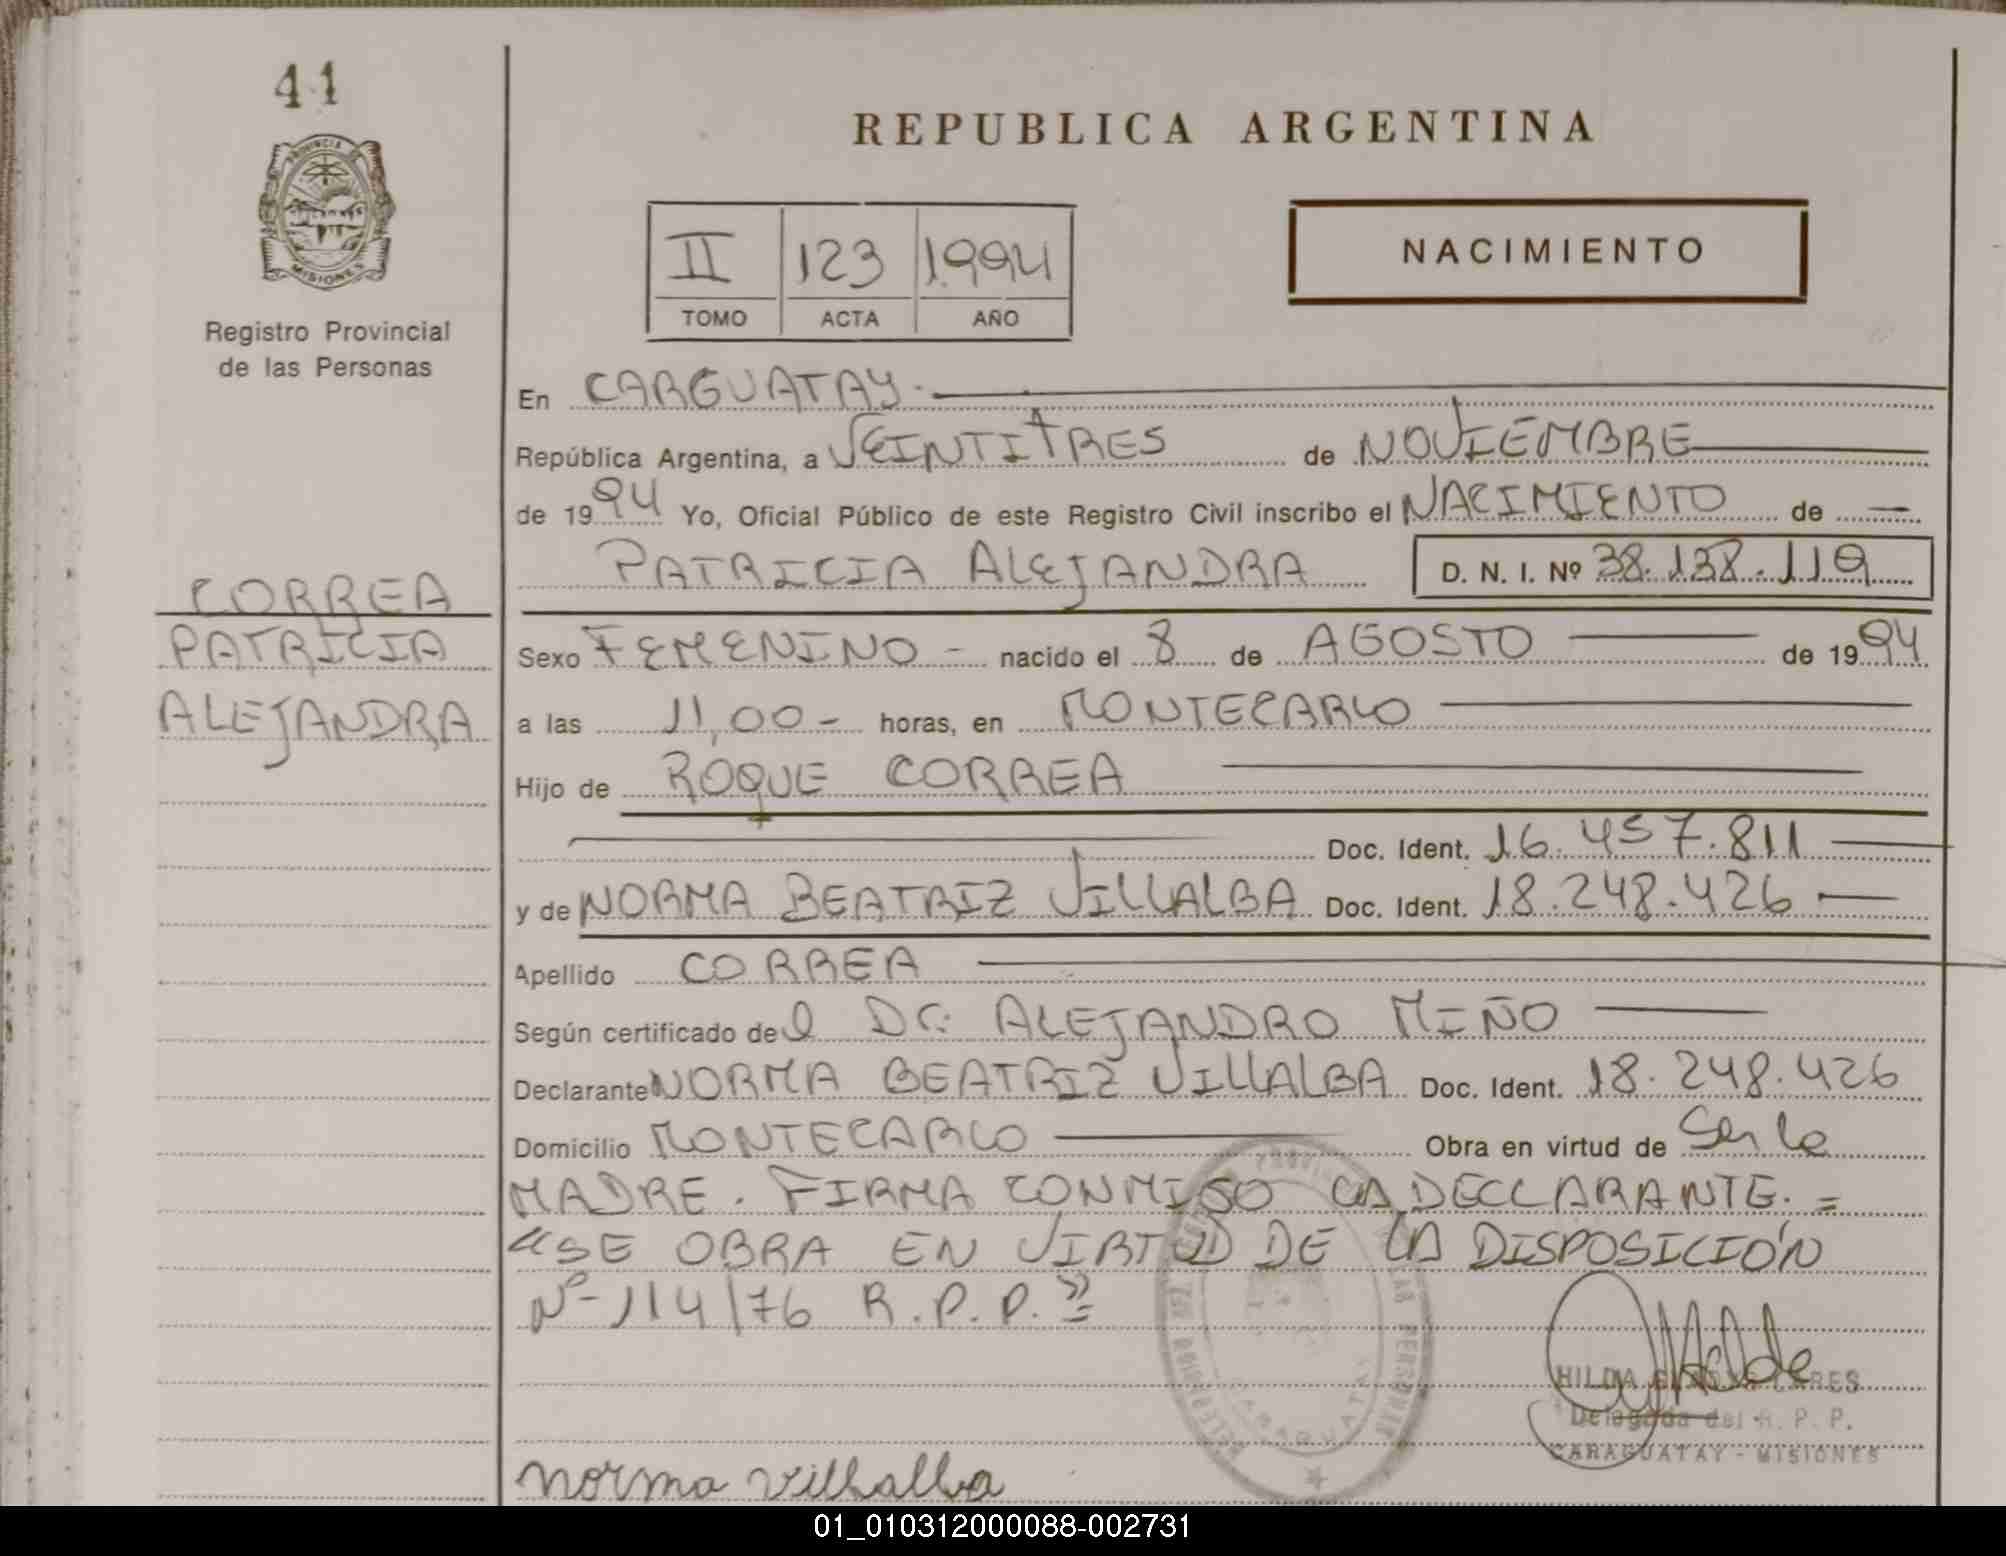 41
PROVINCIA DE
MISIONES
Registro Provincial
de las Personas
CORREA
PATRICIA
ALEJANDRA
REPUBLICA ARGENTINA
NACIMIENTO
II 123 1.994
TOMO ACTA AÑO
En CARGUATAY.
República Argentina, a VEINTITRES de NOVIEMBRE
de 1994 Yo, Oficial Público de este Registro Civil inscribo el NACIMIENTO de
PATRICIA ALEJANDRA D. N. I. Nº 38.138.119
Sexo FEMENINO - nacido el 8 de AGOSTO de 1994
a las 11,00 - horas, en MONTECARLO
Hijo de ROQUE CORREA
Doc. Ident. 16.457.811
y de NORMA BEATRIZ VILLALBA Doc. Ident. 18.248.426
Apellido CORREA
Según certificado del Dr: ALEJANDRO MIÑO
Declarante NORMA BEATRIZ VILLALBA Doc. Ident. 18.248.426
Domicilio MONTECARLO Obra en virtud de Ser la
MADRE. FIRMA CONMIGO LA DECLARANTE. =
"SE OBRA EN VIRTUD DE LA DISPOSICIÓN
Nº 114/76 R.P.P." =
HILDA LARES
Delegada del R. P. P.
CARAGUATAY - MISIONES
norma villalba
01_010312000088-002731